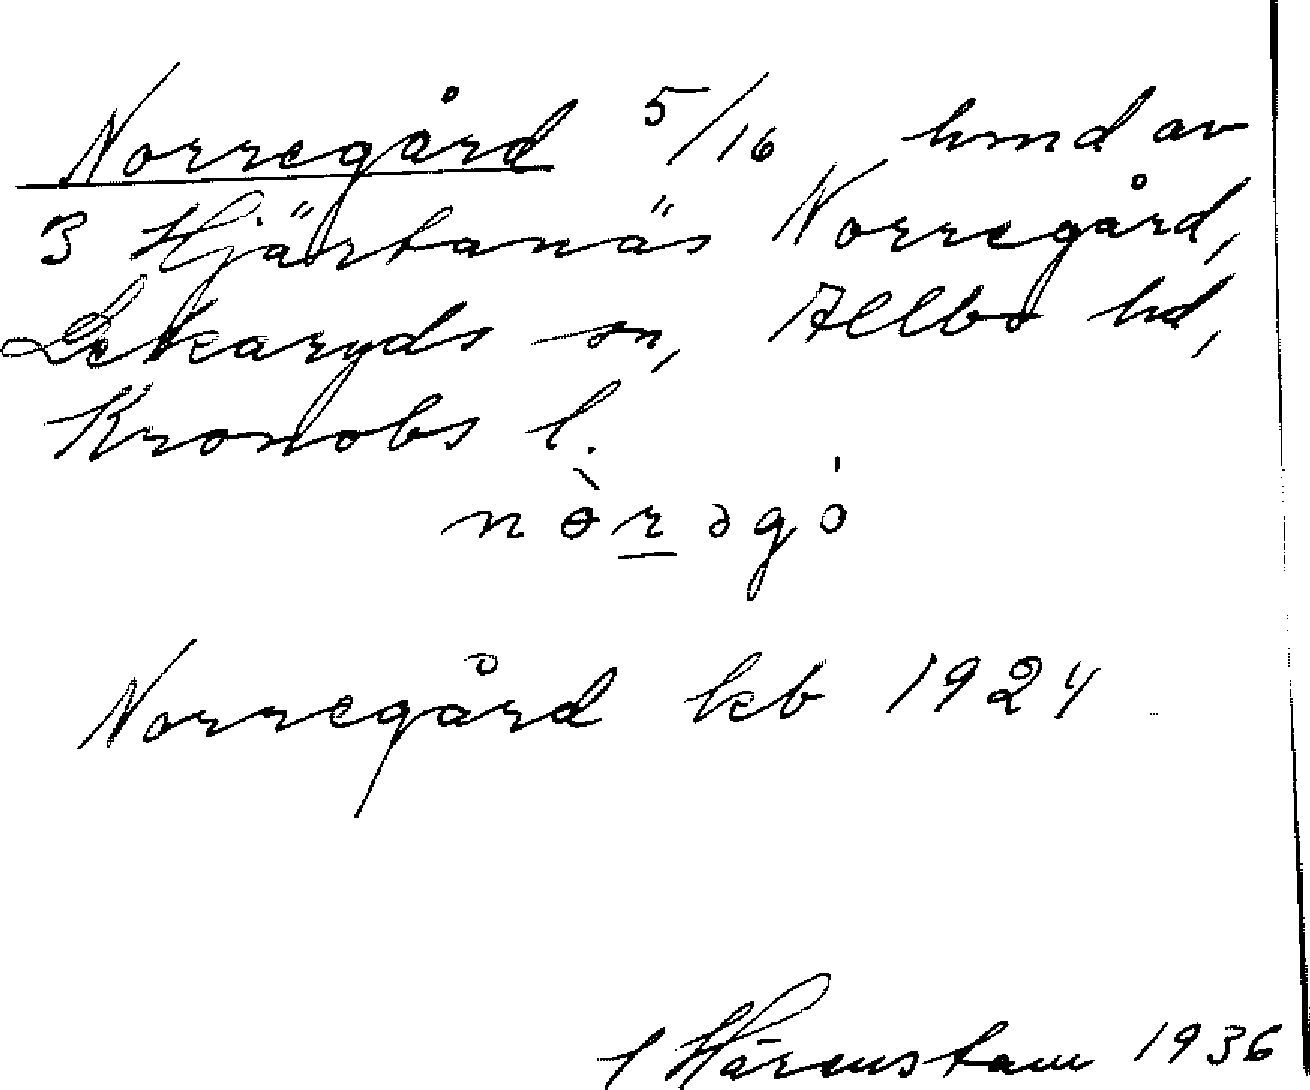 Norregård 5/16 hmd av
3 Hjärtanäs Norregård,
Lekaryds sn, Allbo hd,
Kronobs l.
nɵ̀rəgó
Norregård kb 1924
Härenstam 1936